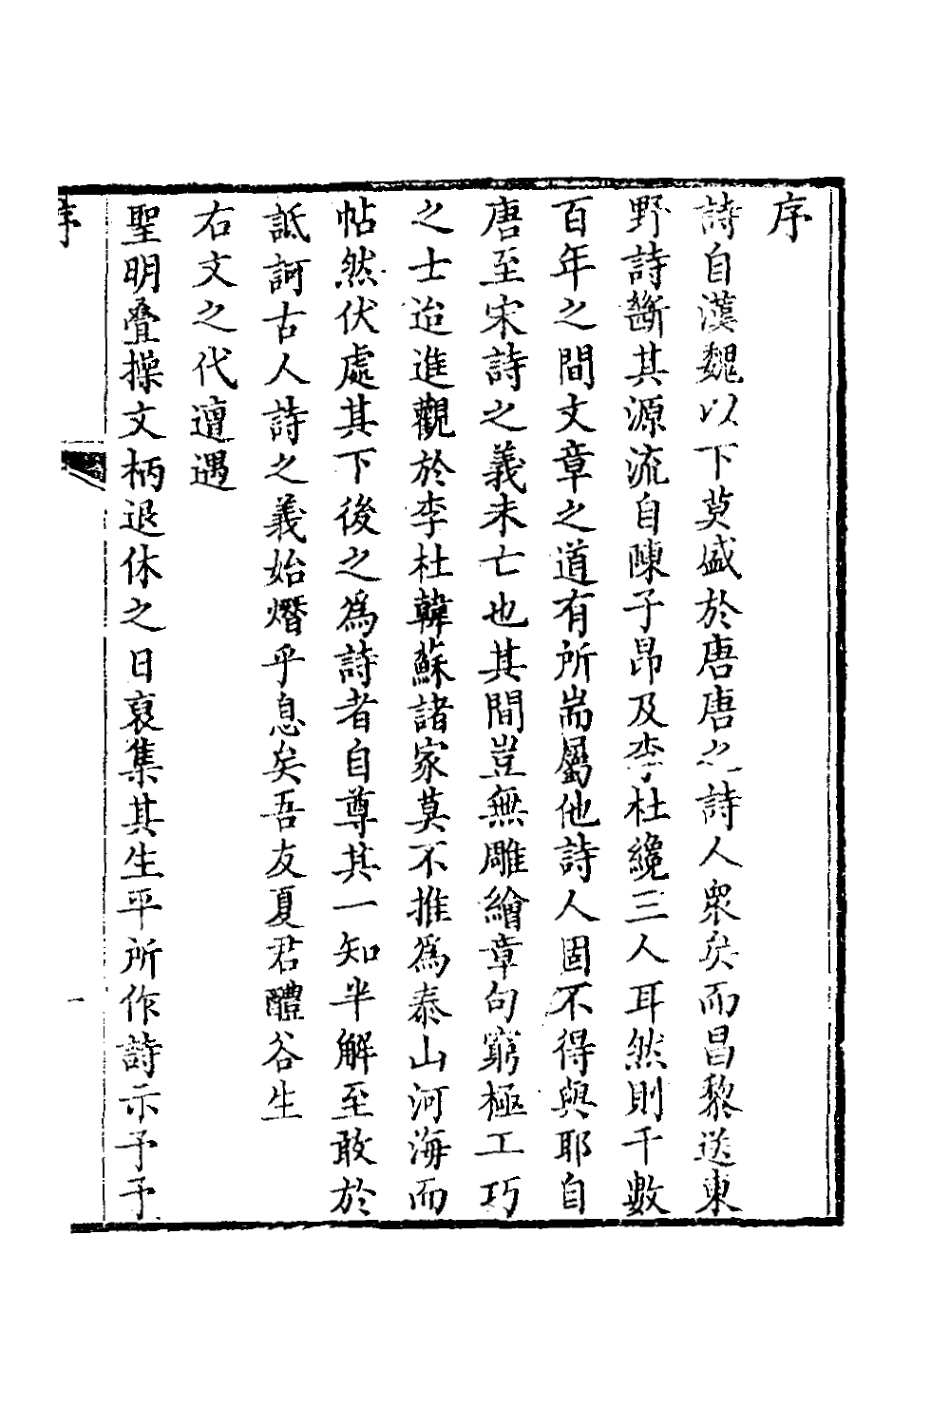 序
詩自漢魏以下莫盛於唐唐之詩人衆矣而昌黎送東
野詩斷其源流自陳子昂及李杜纔三人耳然則千數
百年之間文章之道有所耑屬他詩人固不得與耶自
唐至宋詩之義未亡也其間豈無雕繪章句窮極工巧
之士迨進觀於李杜韓蘇諸家莫不推爲泰山河海而
帖然伏處其下後之爲詩者自尊其一知半解至敢於
詆訶古人詩之義始熸乎息矣吾友夏君醴谷生
右文之代邅遇
聖明叠操文柄退休之日裒集其生平所作詩示予予
序
一